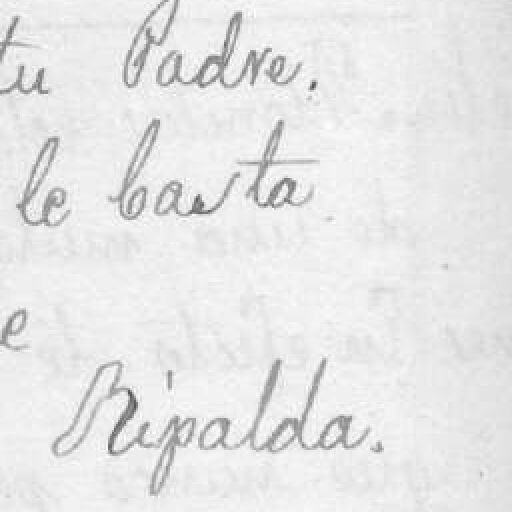 tu Padre.
le basta
e
Ripalda.